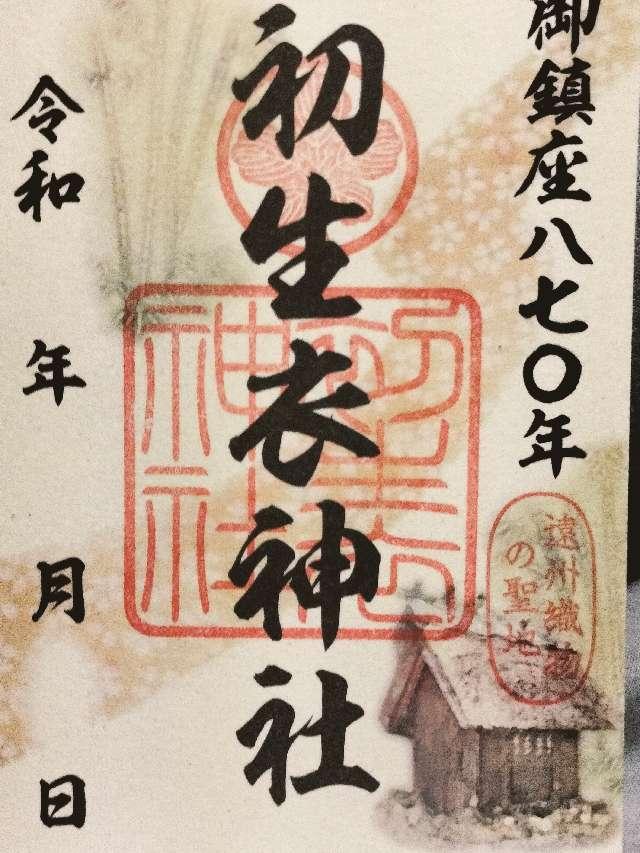 御鎮座八七〇年
遠州織物
の聖地
初生衣神社
令和 年 月 日